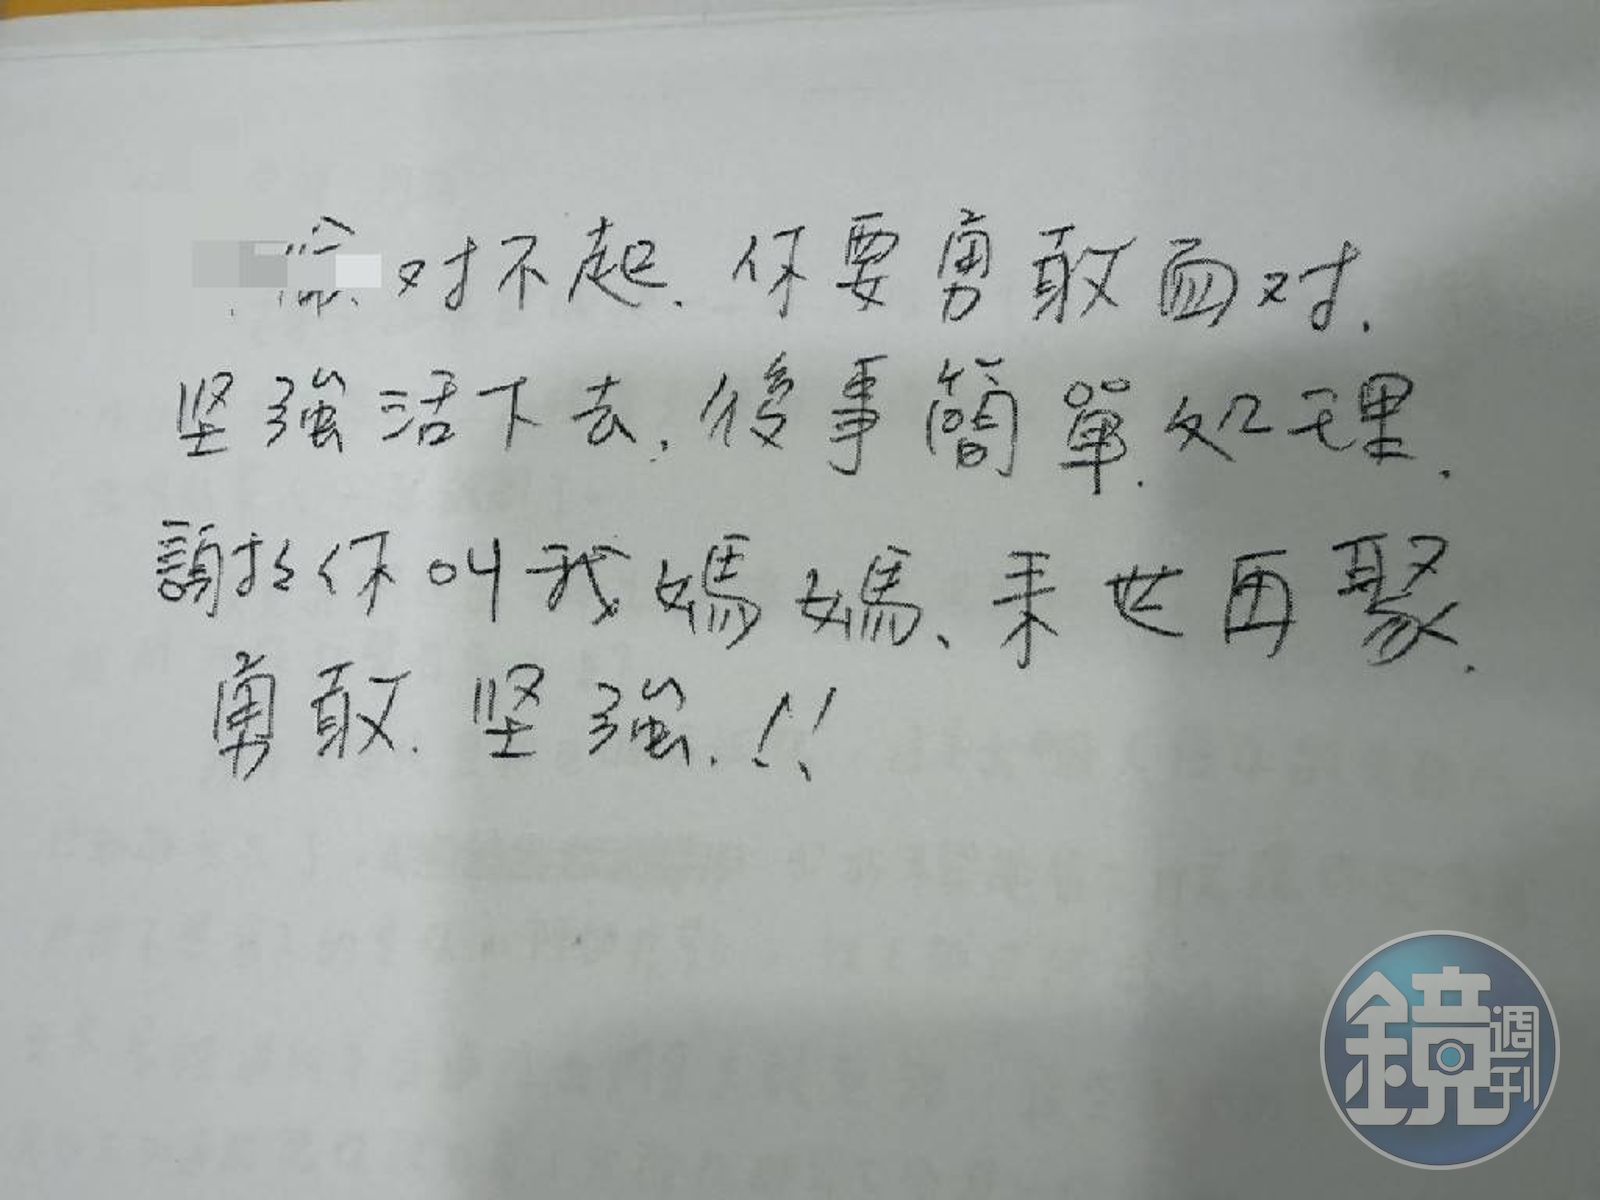 对不起.你要勇敢面对.
坚強活下去.後事簡單.处理.
謝於你叫我媽媽、来世再聚.
勇敢.坚強.!!
鏡週刊